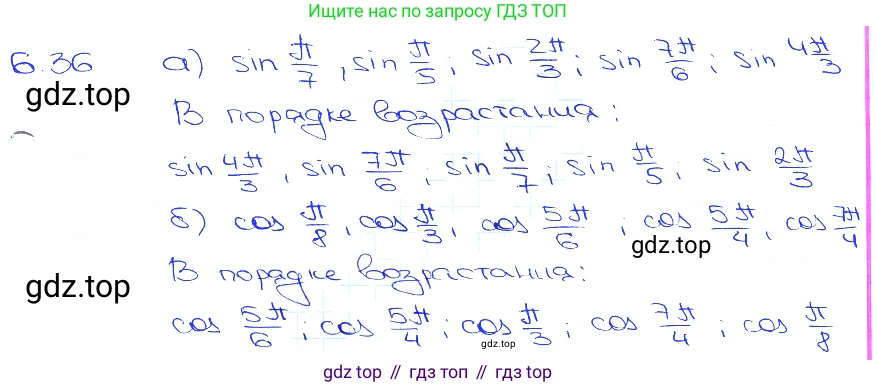 Ищите нас по запросу ГДЗ ТОП
6.36 а) sin π/7, sin π/5; sin 2π/3; sin 7π/6; sin 4π/3
gdz.top
В порядке возрастания:
sin 4π/3, sin 7π/6; sin π/7; sin π/5; sin 2π/3
б) cos π/8, cos π/3, cos 5π/6; cos 5π/4, cos 7π/4
gdz.top
В порядке возрастания:
gdz.top
cos 5π/6; cos 5π/4; cos π/3; cos 7π/4; cos π/8
gdz.top
gdz top // гдз топ // gdz top